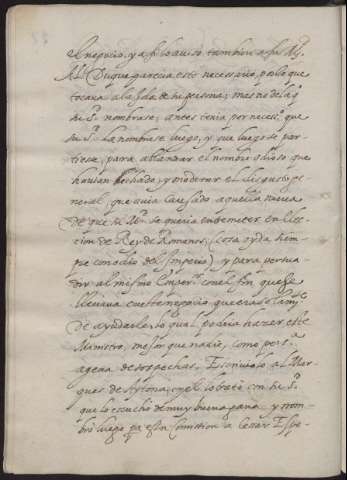 el negocio, y assi lo auiso tambien a su Mgᵈ.
Al Duque parecia esto necessario, por lo que
tocaua a la Ida de su persona; mas no de la q̃
su Sᵈ. nombrase; antes tenia por necess.º que
su Sᵈ. la nombrase luego, y que luego se par-
tiesse, para ablandar el nombre odioso que
hauian hechado, y moderar el disgusto ge-
neral, que auia causado aquella nueua
de que su Mᵈ. se queria entremeter en Elec-
cion de Rey de Romanos, (cosa oyda siem-
pre con odio del Imperio) y para persua-
dir al mismo Emperᵒʳ. con el fin que se
lleuaua en este negocio, que era solamᵗᵉ.
de ayudarle, lo qual podria hazer este
Ministro, mejor que nadie, como persᵃ.
agena de sospechas. Escriuiolo al Mar-
ques de Aytona, y el lo trató con su Sᵈ.
que lo escuchó de muy buena gana, y nom-
bró luego pᵃ esta Comission a Cesar Espe-